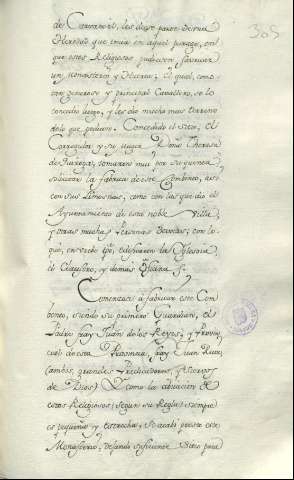 305
de Carvancos, les diese parte de una
Heredad que tenia en aquel parage, en
que estos Religiosos pudiesen, fabricar
un, Monasterio y Huerta; el qual, como
tan generoso y principal Cavallero, se lo
concedio luego, y les dio mucho mas terreno
de lo que pedian. Concedido el Sitio, el
Corregidor y su muger D.ª Theresa
de tomaron muy por su quenta,
solicitar la fabrica de este Combento, asi
con sus Limosnas, como con las que dio el
Ayuntamiento de esta noble Villa,
y otras muchas Personas Devotas; con lo
qual, en breve tpo, edificaron la Iglesia,
el Claustro, y demas
Comenzose à fabricar este Com
bento, siendo su primero Guardian, el
Padre fray Juan de los Reyes, y Provin
cial de esta Provincia, fray Juan
(ambos, grandes Predicadores, y Siervos
de Dios) Y como la abitacion de
estos Religiosos (segun su Regla) siempre
es pequeña y estrecha, se acabò presto este
Monasterio, dejando suficiente Sitio para